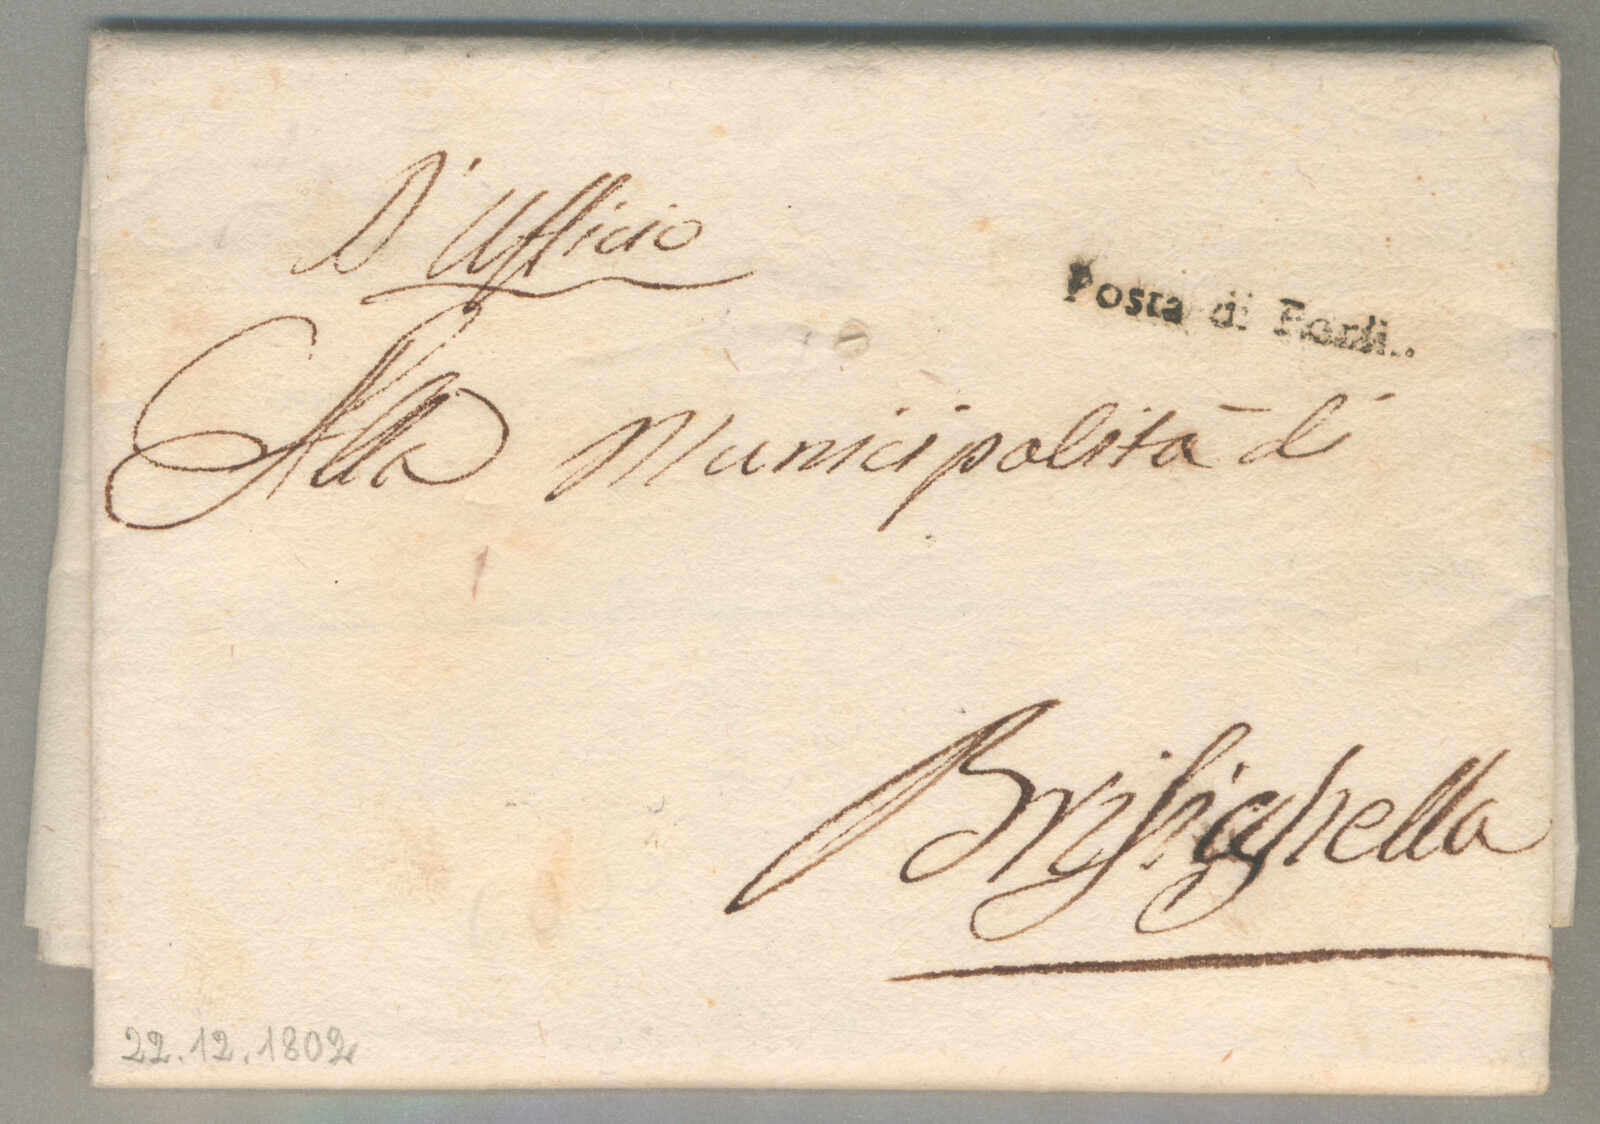 D'Ufficio
Posta di Forlì..
Alla Municipalità di
Brisighella
22.12.1802